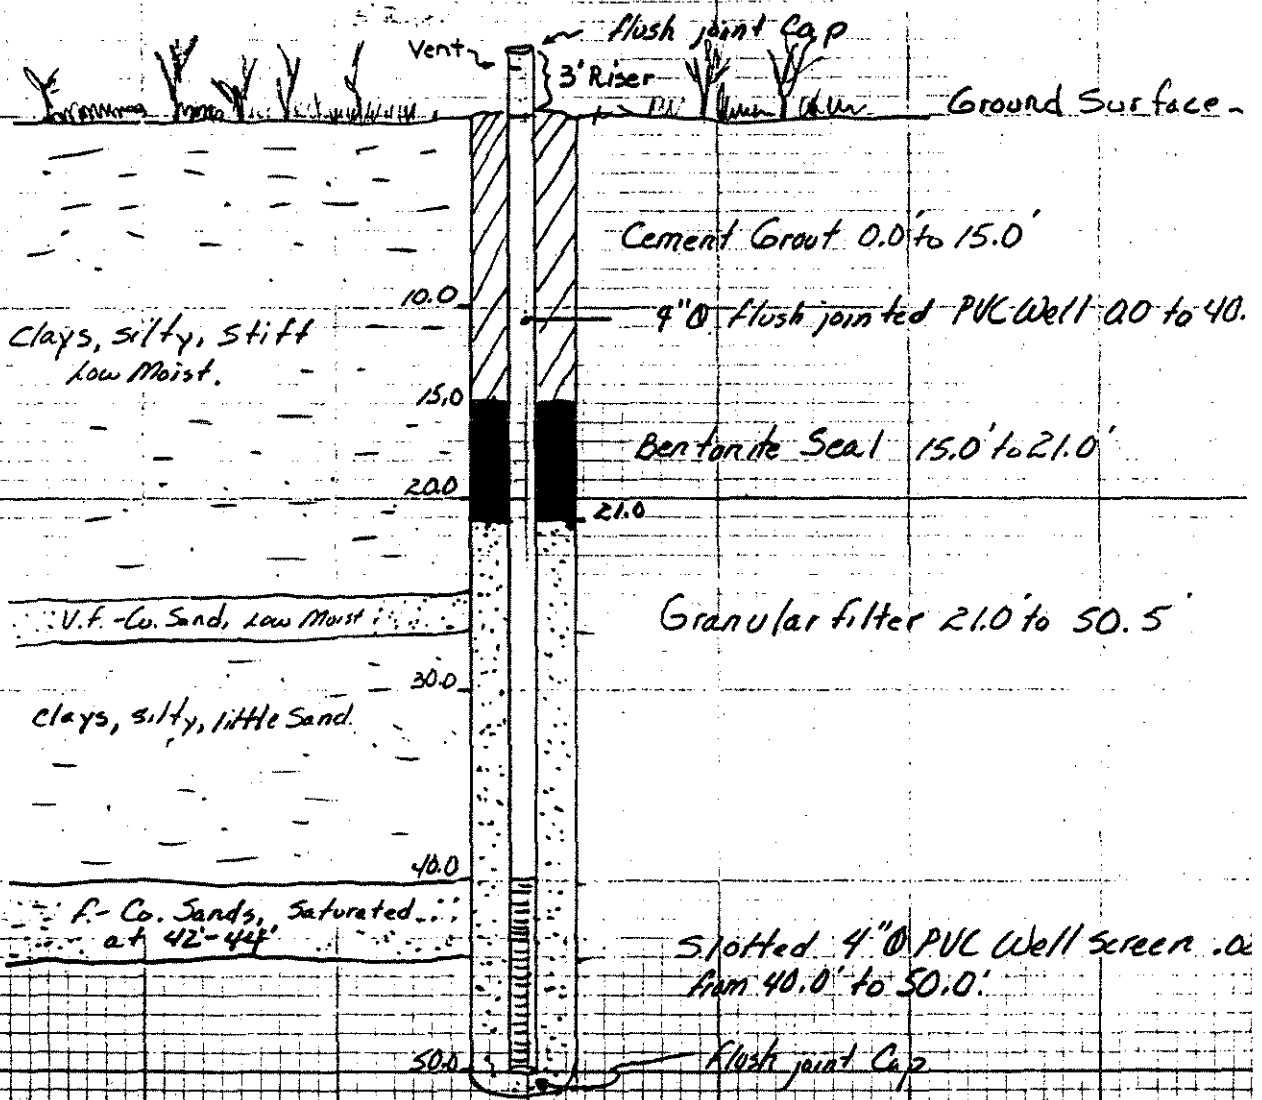 flush joint Cap
Vent
3' Riser
Ground Surface
Cement Grout 0.0' to 15.0'
10.0
4"Ø flush jointed PVC Well 0.0 to 40.
Clays, silty, stiff
Low Moist.
15.0
Bentonite Seal 15.0' to 21.0'
20.0
21.0
V.f.-Co. Sand, Low Moist
Granular filter 21.0' to 50.5'
30.0
clays, silty, little Sand.
40.0
f.-Co. Sands, Saturated
at 42'-44'
Slotted 4"Ø PVC Well Screen
from 40.0' to 50.0'
50.0
Flush joint Cap